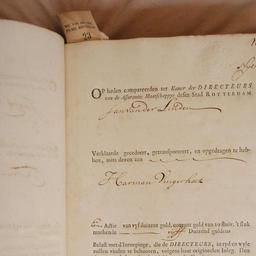 23
OP heden compareerden ter Kamer der DIRECTEURS
van de Assurantie Maatschappye deser Stad ROTTERDAM
Jan van der Linden
Verklaarde gecedeert, getransporteert, en opgedragen te heb-
ben, mits desen aan
Harman Vingerhoet
Actie van vyf duisent guld. courant geld van 20 stuiv. 't stuk
Duisend guldens
Belast met d'Inteeninge, die de DIRECTEURS, in tyd en wyle
sullen vinden te behooren, volgens haar origineelen Inleg. Den